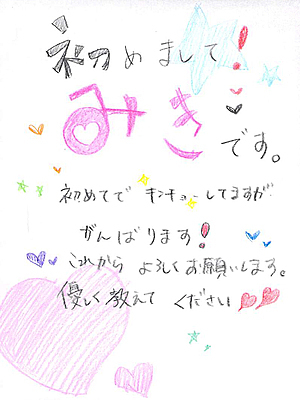 初めまして!
みき
です。
初めてで キンチョーしてますが
がんばります!
これから よろしくお願いします。
優しく教えて ください